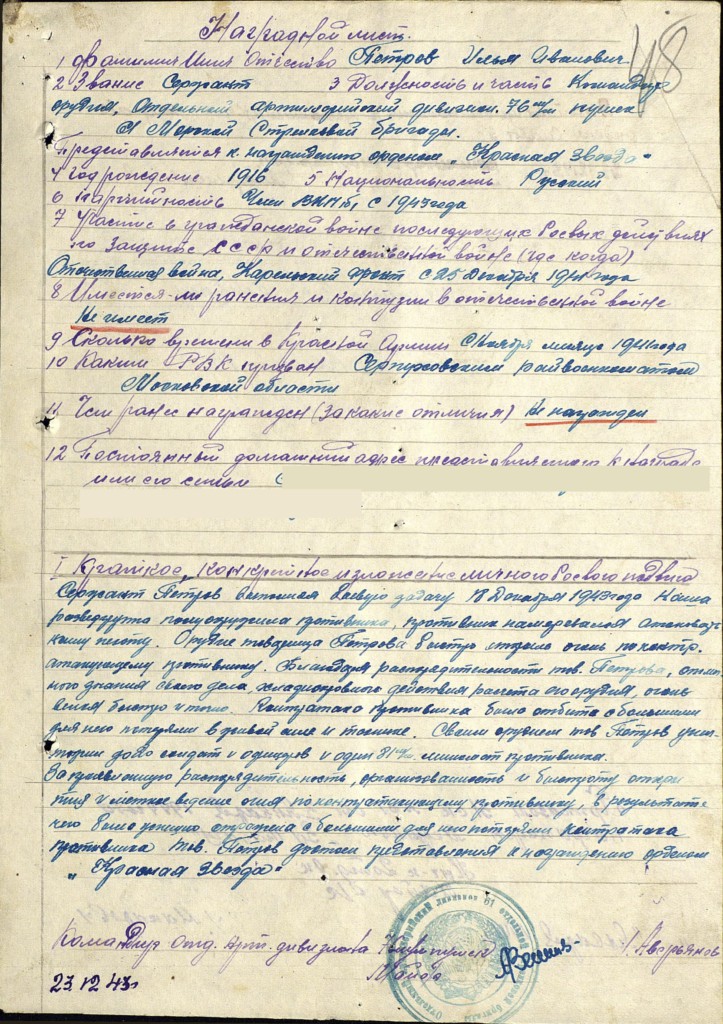 48
Наградной лист.
1 Фамилия Имя Отчество Петров Илья Иванович
2 Звание Сержант 3 Должность и часть Командир
орудия, Отдельный артиллерийский дивизион 76 м/м пушек
61 Морской Стрелковой бригады.
Представляется к награждению орденом „Красная Звезда"
4 год рождение 1916 5 Национальность Русский
6 Партийность Член ВКП(б) с 1943 года
7 Участие в гражданской войне последующих боевых действиях
по защите СССР и отечественной войне (где когда)
Отечественная война, Карельский фронт с 25 Декабря 1941 года
8 Имеется-ли ранения и контузии в отечественной войне
Не имеет
9 Сколько времени в Красной Армии с Ноября месяца 1941 года
10 Каким РВК призван Серпуховским райвоенкоматом
Московской области
11 Чем ранее награжден (за какие отличия) Не награжден
12 Постоянный домашний адрес представляемого к награде
или его семьи
I Краткое, конкретное изложение личного боевого подвига
Сержант Петров выполняя боевую задачу 18 Декабря 1943 года
разведгруппа противника, противник намеревался атаковать
нашу пехоту. Орудие товарища Петрова быстро открыло огонь по контр.
атакующему противнику. Благодаря распорядительности тов. Петрова, отлич-
ного знания своего дела, хладнокровного действия расчета его орудия, огонь
велся быстро и точно. Контратака противника была отбита с большими
для него потерями в живой силе и технике. Своим орудием тов Петров унич-
тожил до 20 солдат и офицеров и один 81 м/м миномет противника.
За проявленную распорядительность, организованность и быстроту откры
тия и меткое ведение огня по контратакующему противнику, в результате
чего была успешно отражена с большими для него потерями контратака
противника тов. Петров достоин представления к награждению орденом
„Красная Звезда"
Командир отд. арт. дивизиона 76 м/м пушек
Майор Аверьянов
23.12.43г.